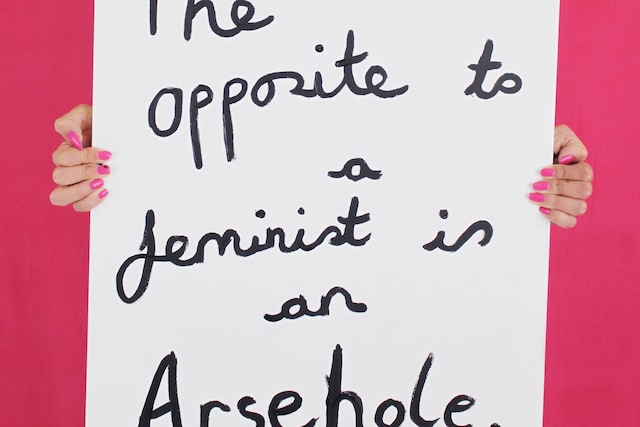 The
opposite to
a
feminist is
an
Arsehole.